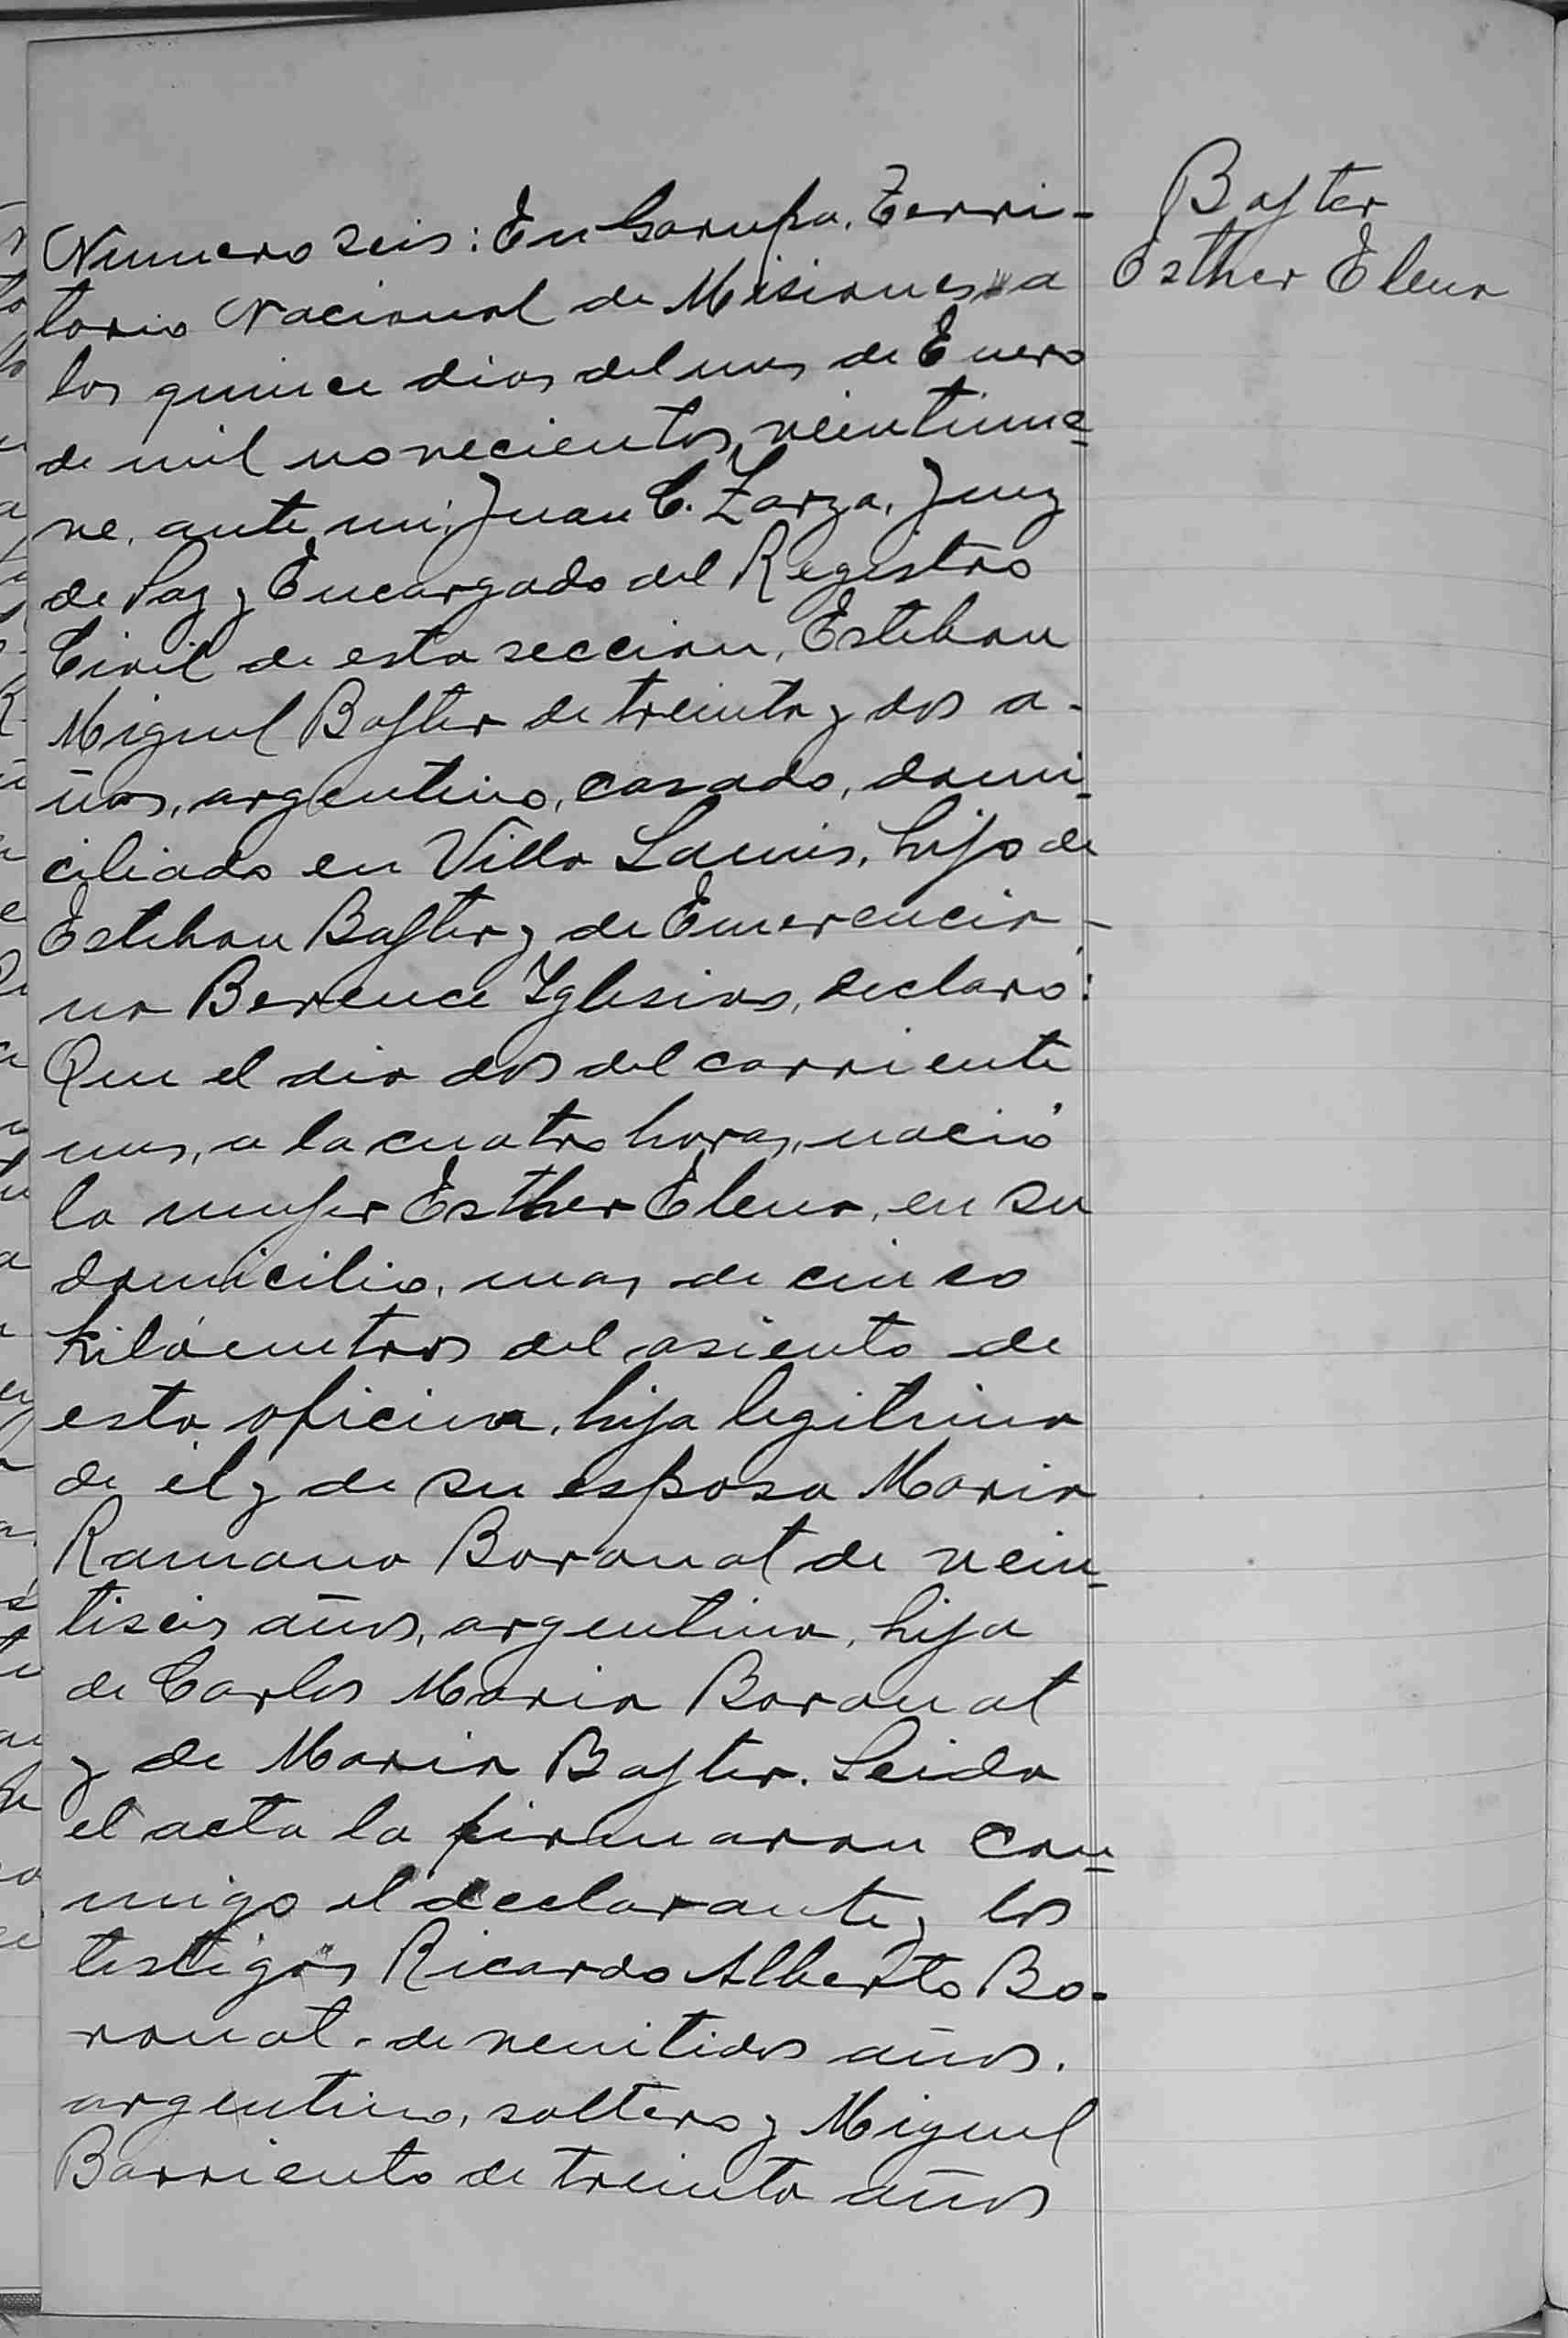 Bajter
Esther Elena
Numero seis: En Garupa, Terri-
torio Nacional de Misiones, a
los quince dias del mes de Enero
de mil novecientos veintinue=
ve, ante mi, Juan C. Zarza, Juez
de Paz y Encargado del Registro
Civil de esta seccion, Esteban
Miguel Bajter de treinta y dos a-
ños, argentino, casado, domi=
ciliado en Villa Lanús, hijo de
Esteban Bajter y de Emerencia-
na Berence Yglesias, declaró:
Que el dia dos del corriente
mes, a la cuatro horas, nació
la mujer Esther Elena, en su
domicilio, mas de cinco
kilómetros del asiento de
esta oficina, hija legitima
de él y de su esposa Maria
Ramona Boronat de vein=
tiseis años, argentina, hija
de Carlos Maria Boronat
y de Maria Bajter. Leida
el acta la firmaron con=
migo el declarante y los
testigos Ricardo Alberto Bo-
ronat de venitidos años,
argentino, soltero y Miguel
Barriento de treinta años